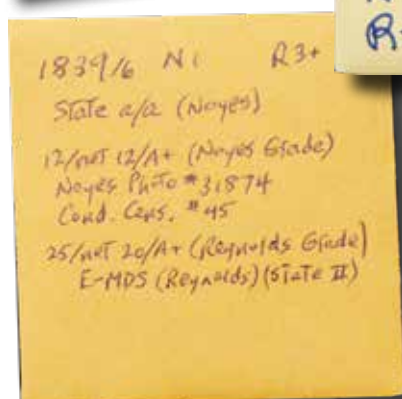 1839/6 N1 R3+
State a/a (Noyes)
12/net 12/A+ (Noyes Grade)
Noyes Photo #31874
Cond. Cens. #45
25/net 20/A+ (Reynolds Grade)
E-MDS (Reynolds) (State II)